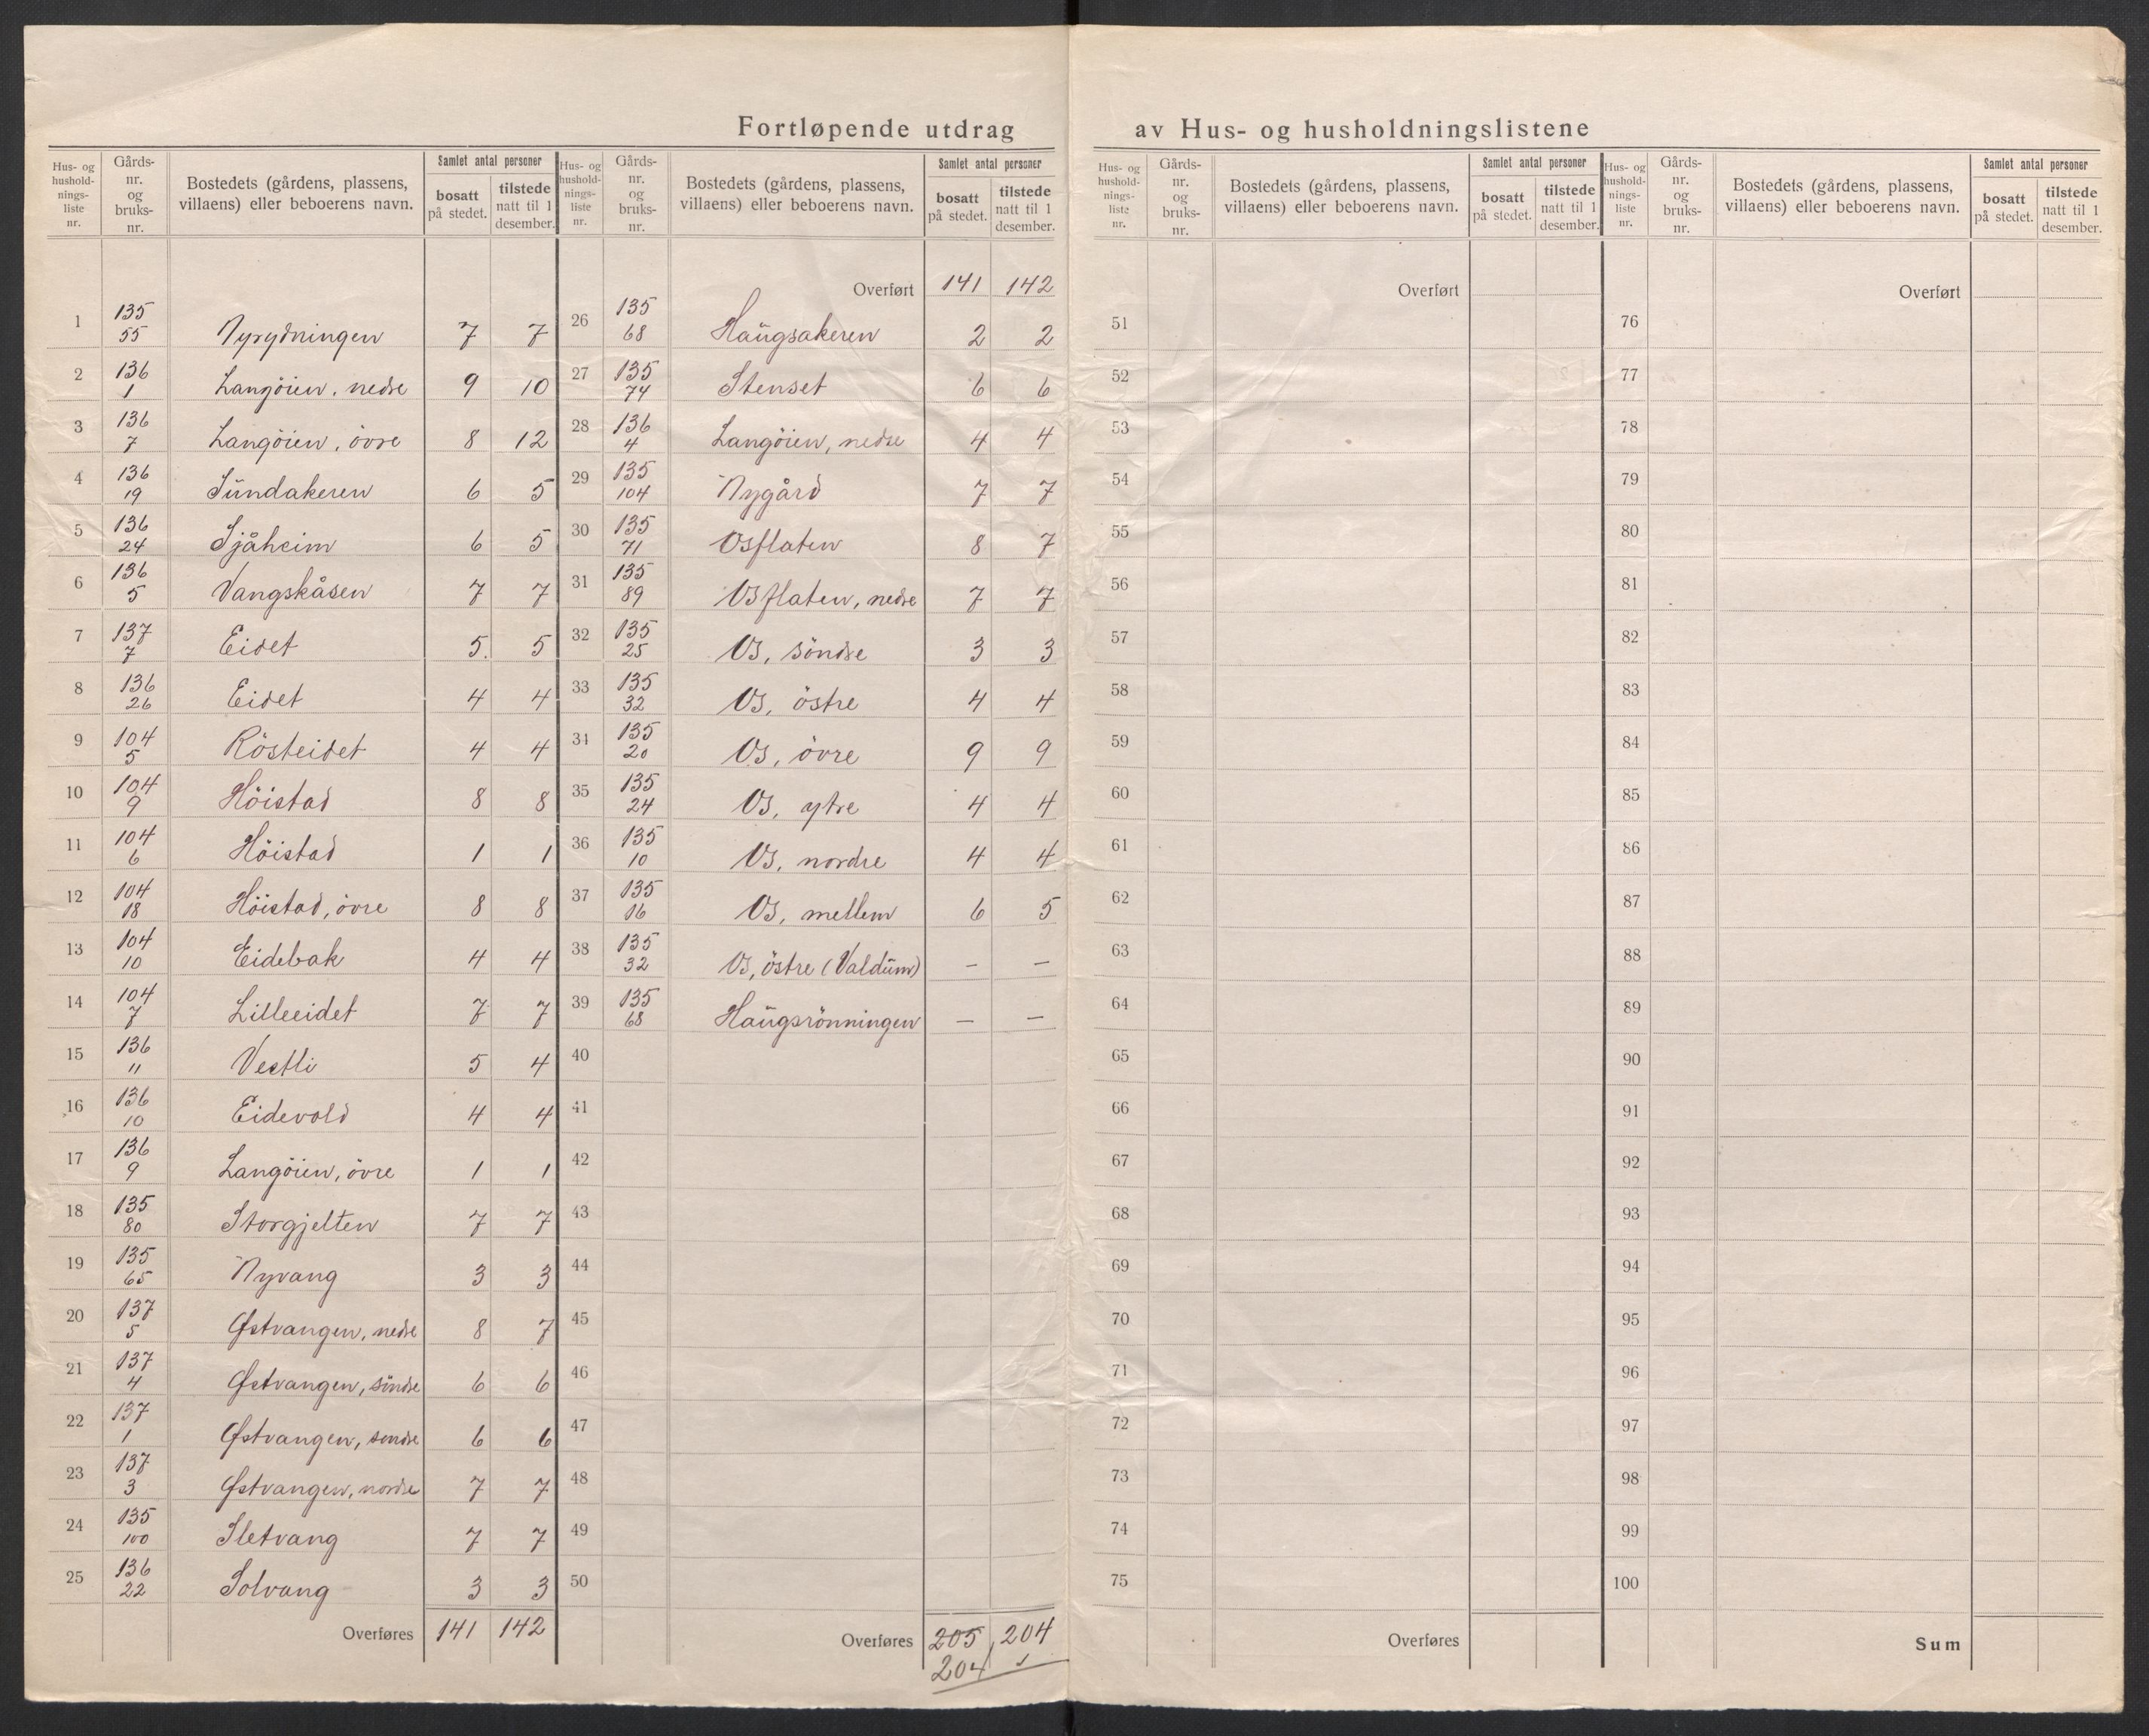 Fortløpende utdrag av Hus- og husholdningslistene
Hus- og husholdnings-liste nr. | Gårds-nr. og bruks-nr. | Bostedets (gårdens, plassens, villaens) eller beboerens navn. | Samlet antal personer | bosatt på stedet. | tilstede natt til 1 desember.
1 | 135 55 | Nyrydningen | 7 | 7
2 | 136 1 | Langöien, nedre | 9 | 10
3 | 136 7 | Langöien, övre | 8 | 12
4 | 136 19 | Sündakeren | 6 | 5
5 | 136 24 | Sjåheim | 6 | 5
6 | 136 5 | Vangskåsen | 7 | 7
7 | 137 7 | Eidet | 5. | 5
8 | 136 26 | Eidet | 4 | 4
9 | 104 5 | Rösteidet | 4 | 4
10 | 104 9 | Höistad | 8 | 8
11 | 104 6 | Höistad | 1 | 1
12 | 104 18 | Höistad, övre | 8 | 8
13 | 104 10 | Eidebak | 4 | 4
14 | 104 7 | Lilleeidet | 7 | 7
15 | 136 11 | Vestli | 5 | 4
16 | 136 10 | Eidevold | 4 | 4
17 | 136 9 | Langöien, övre | 1 | 1
18 | 135 80 | Storgjelten | 7 | 7
19 | 135 65 | Nyvang | 3 | 3
20 | 137 5 | Østvangen, nedre | 8 | 7
21 | 137 4 | Østvangen, söndre | 6 | 6
22 | 137 1 | Østvangen, søndre | 6 | 6
23 | 137 3 | Østvangen, nordre | 7 | 7
24 | 135 100 | Sletvang | 7 | 7
25 | 136 22 | Solvang | 3 | 3
Overføres | 141 | 142
Hus- og husholdnings-liste nr. | Gårds-nr. og bruks-nr. | Bostedets (gårdens, plassens, villaens) eller beboerens navn. | Samlet antal personer | bosatt på stedet. | tilstede natt til 1 desember.
Overført | 141 | 142
26 | 135 68 | Haügsakeren | 2 | 2
27 | 135 74 | Stenset | 6 | 6
28 | 136 4 | Langöien, nedre | 4 | 4
29 | 135 104 | Nygård | 7 | 7
30 | 135 71 | Osflaten | 8 | 7
31 | 135 89 | Osflaten, nedre | 7 | 7
32 | 135 25 | Os, söndre | 3 | 3
33 | 135 32 | Os, östre | 4 | 4
34 | 135 20 | Os, övre | 9 | 9
35 | 135 24 | Os, ytre | 4 | 4
36 | 135 10 | Os, nordre | 4 | 4
37 | 135 16 | Os, mellem | 6 | 5
38 | 135 32 | Os, östre (Valdüm) | – | –
39 | 135 68 | Haügsrönningen | – | –
40
41
42
43
44
45
46
47
48
49
50
Overføres | 205 | 204
204
Hus- og husholdnings-liste nr. | Gårds-nr. og bruks-nr. | Bostedets (gårdens, plassens, villaens) eller beboerens navn. | Samlet antal personer | bosatt på stedet. | tilstede natt til 1 desember.
Overført
51
52
53
54
55
56
57
58
59
60
61
62
63
64
65
66
67
68
69
70
71
72
73
74
75
Overføres
Hus- og husholdnings-liste nr. | Gårds-nr. og bruks-nr. | Bostedets (gårdens, plassens, villaens) eller beboerens navn. | Samlet antal personer | bosatt på stedet. | tilstede natt til 1 desember.
Overført
76
77
78
79
80
81
82
83
84
85
86
87
88
89
90
91
92
93
94
95
96
97
98
99
100
Sum